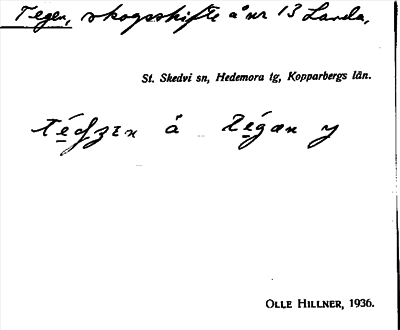 Tegen, skogsskifte å nr 13 Landa,
St. Skedvi sn, Hedemora tg, Kopparbergs län.
å
OLLE HILLNER, 1936.